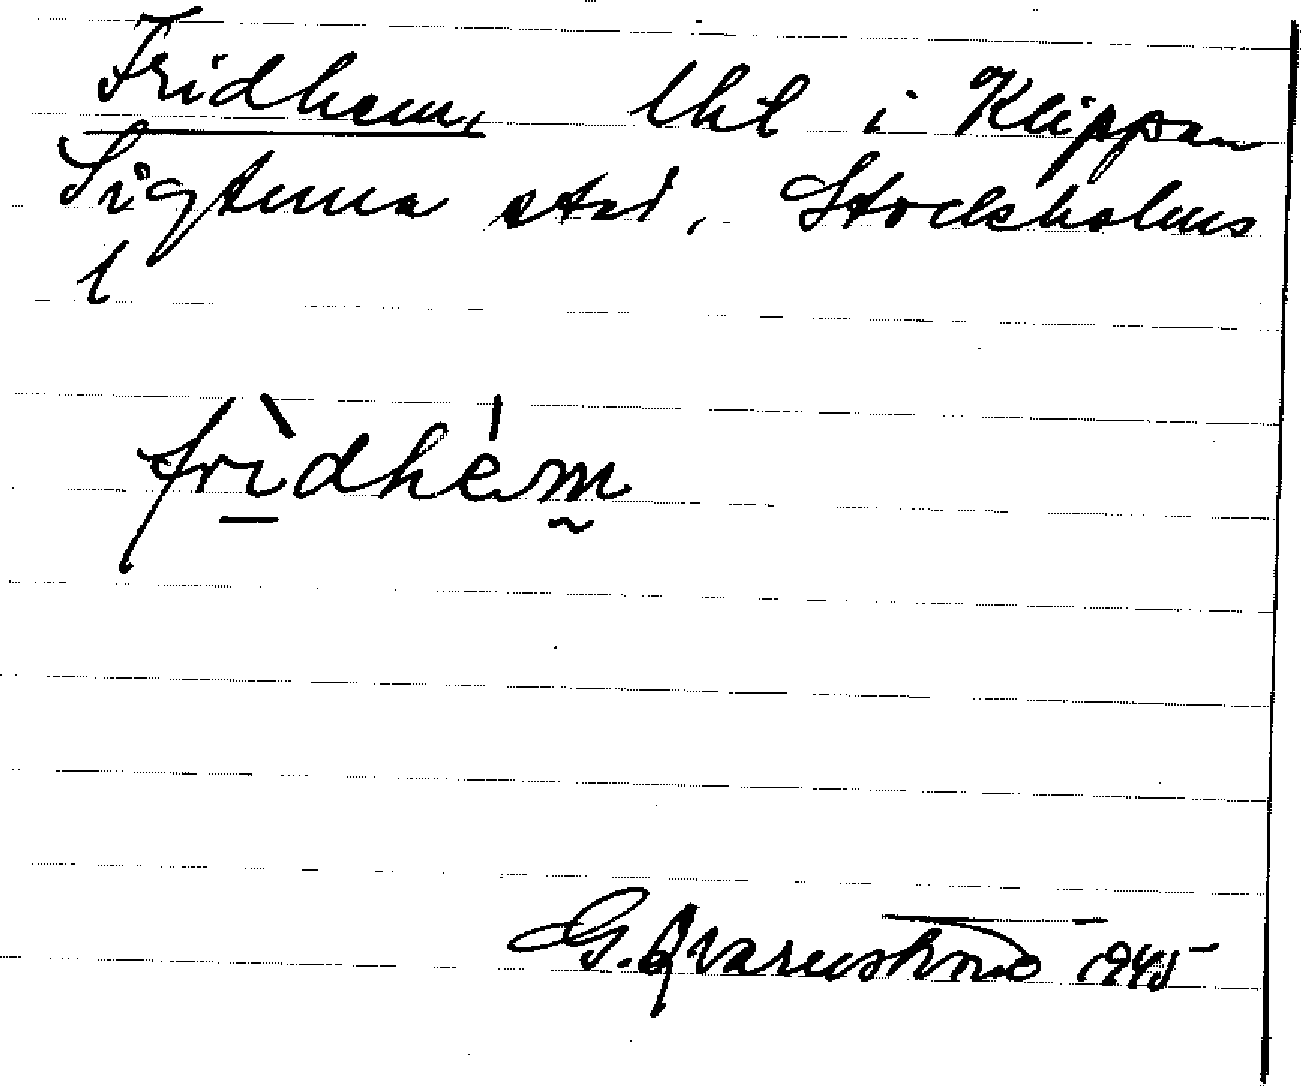 Fridhem, lht i Klippan
Sigtuna stad, Stockholms
l
frì̱dhém̰
G. Qvarnström 1945